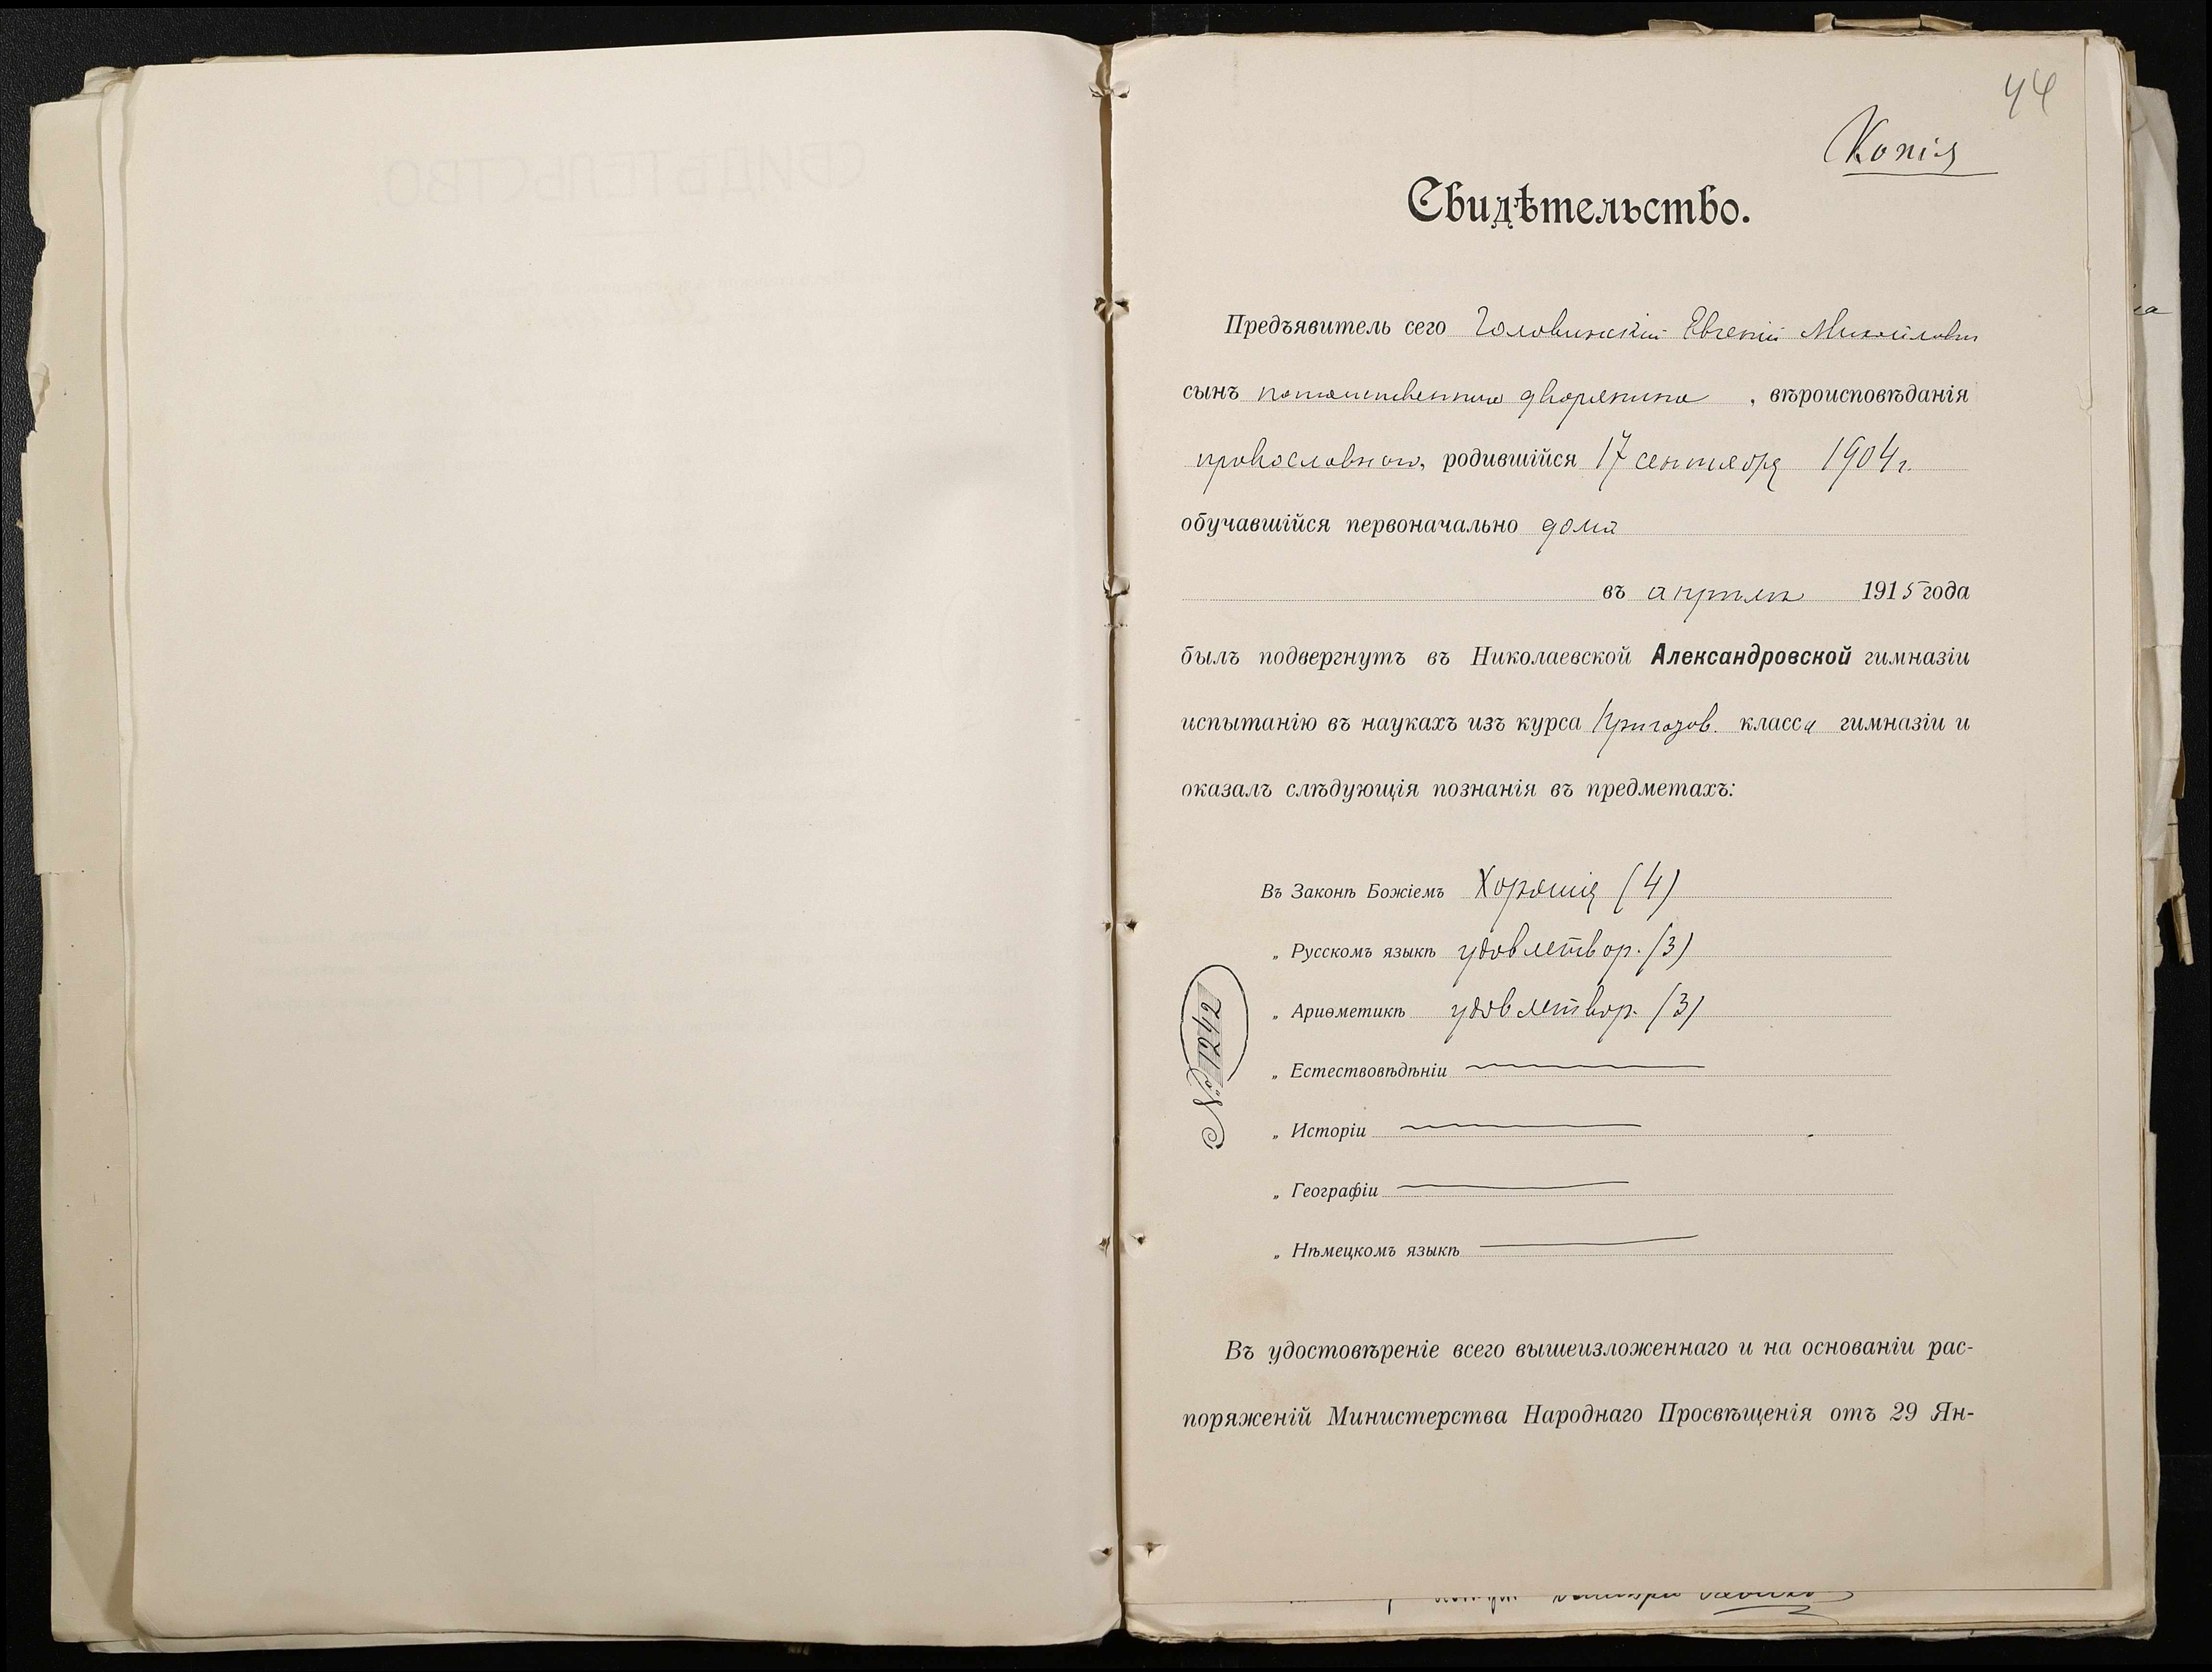 44
Копія
Свидѣтельство.
Предъявитель сего Головинскій Евгеній Михайлович
сынъ потомственнаго дворянина , вѣроисповѣданія
православнаго, родившійся 17 сентября 1904 г.
обучавшійся первоначально дома
въ апрѣлѣ 1915 года
былъ подвергнутъ въ Николаевской Александровской гимназіи
испытанію въ наукахъ изъ курса Пригот‌ов. класса гимназіи и
оказалъ слѣдующія познанія въ предметахъ:
Въ Законѣ Божіемъ Хорошія (4)
„ Русскомъ языкѣ удовлетвор. (3)
„ Ариѳметикѣ удовлетвор. (3)
„ Естествовѣдѣніи
„ Исторіи
„ Географіи
„ Нѣмецкомъ языкѣ
№ 1242
Въ удостовѣреніе всего вышеизложеннаго и на основаніи рас-
поряженій Министерства Народнаго Просвѣщенія отъ 29 Ян-
СВИДѢТЕЛЬСТВО.